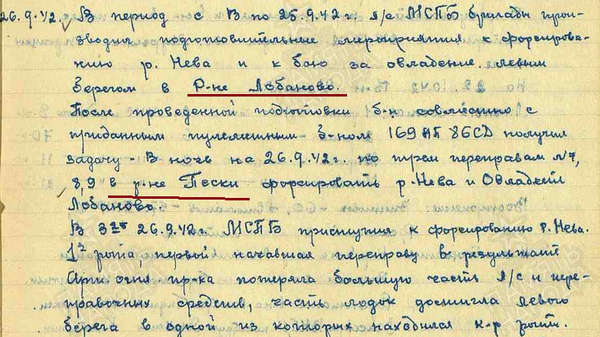 26.9.42. В период с 8 по 25.9.42г. л/с МСПБ бригады прои-
зводил подготовительные мероприятия к форсирова-
нию р. Нева и к бою за овладение левым
берегом в Р-не Лобаново.
После проведенной подготовки б-н совместно с
приданным пулеметным б-ном 169 СП 86СД получил
задачу - В ночь на 26.9.42г. по трем переправам №7,
8,9 в р-не Пески форсировать р. Нева и Овладеть
Лобаново.
В 3 26.9.42г. МСПБ приступил к форсированию р. Нева.
1я рота первой начавшая переправу в результате
Арт огня пр-ка потеряла большую часть л/с и пере-
правочных средств, часть лодок достигла левого
берега в одной из которых находился к-р роты.